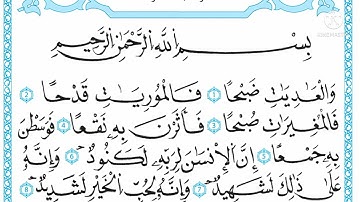 بِسْمِ اللَّهِ الرَّحْمَٰنِ الرَّحِيمِ
وَالْعَٰدِيَٰتِ ضَبْحًا ١ فَالْمُورِيَٰتِ قَدْحًا ٢
فَالْمُغِيرَٰتِ صُبْحًا ٣ فَأَثَرْنَ بِهِ نَقْعًا ٤ فَوَسَطْنَ
بِهِ جَمْعًا ٥ إِنَّ الْإِنْسَٰنَ لِرَبِّهِ لَكَنُودٌ ٦ وَإِنَّهُ
عَلَىٰ ذَٰلِكَ لَشَهِيدٌ ٧ وَإِنَّهُ لِحُبِّ الْخَيْرِ لَشَدِيدٌ ٨